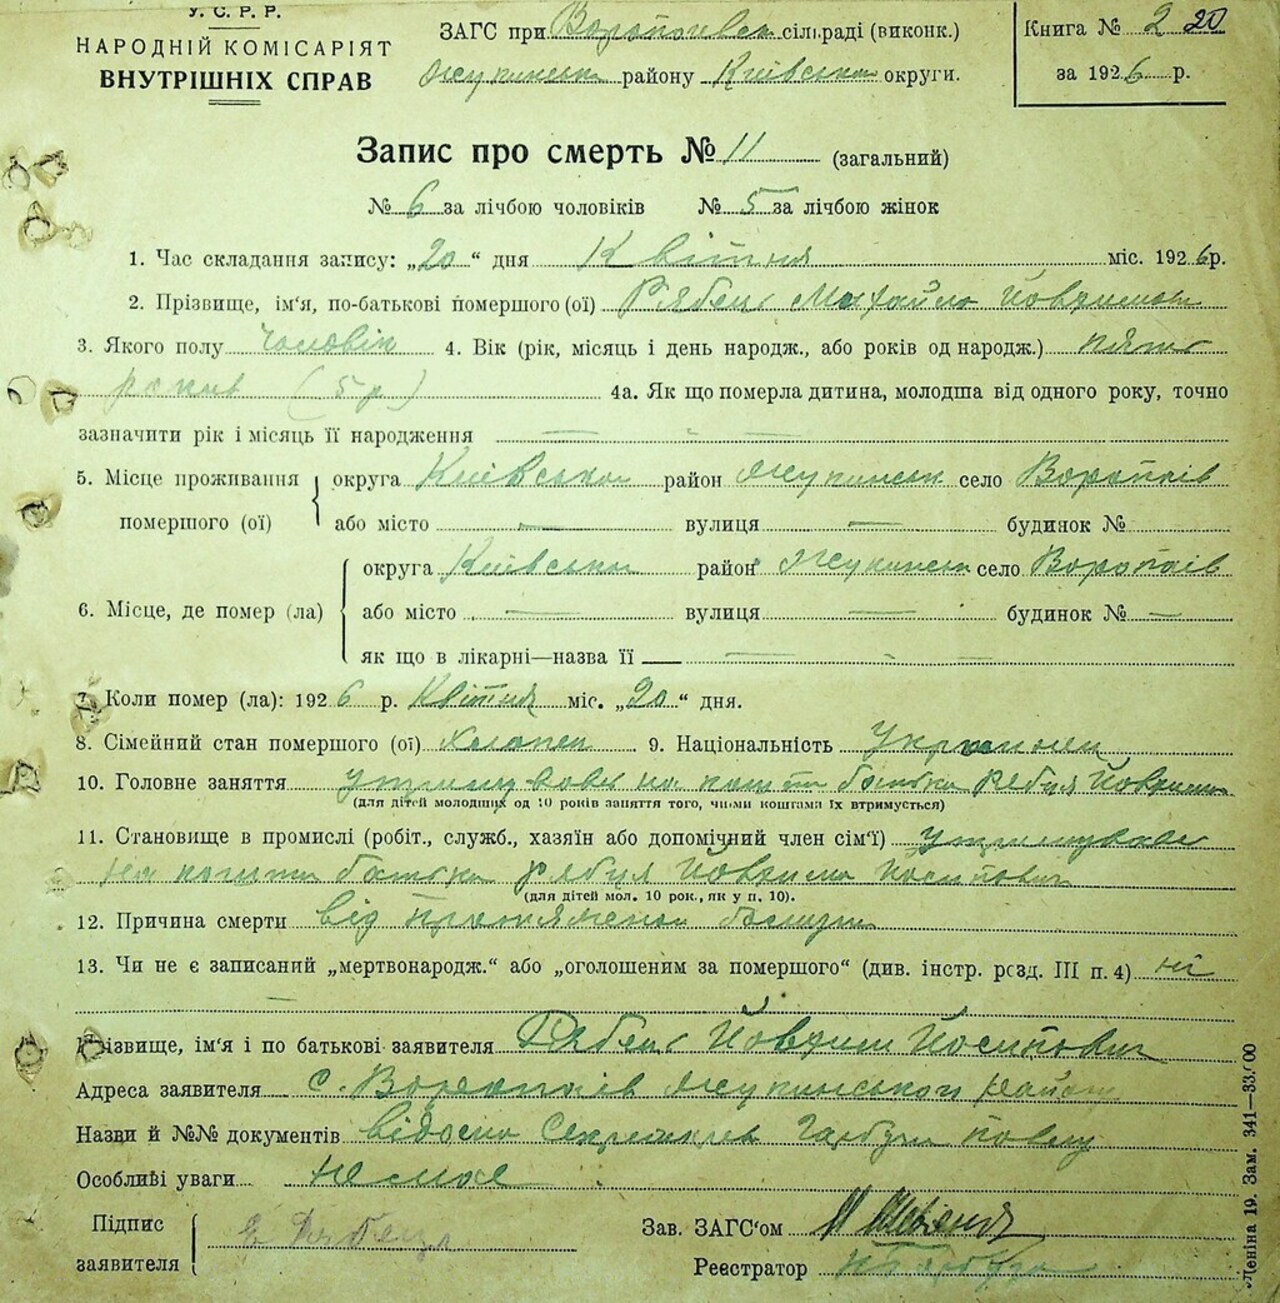 У. С. Р. Р.
НАРОДНІЙ КОМІСАРІЯТ
ВНУТРІШНІХ СПРАВ
ЗАГС при Воропаївск сільраді (виконк.)
Жукинськ району Київської округи.
Книга № 2 20
за 1926 р.
Запис про смерть № 11 (загальний)
№ 6 за лічбою чоловіків № 5 за лічбою жінок
1. Час складання запису: „20“ дня Квітня міс. 1926 р.
2. Прізвище, ім‘я, по-батькові помершого (ої) Рябець Михайло Йовхимов
3. Якого полу чоловік 4. Вік (рік, місяць і день народж., або років од народж.) пять
років (5 р) 4а. Як що померла дитина, молодша від одного року, точно
зазначити рік і місяць її народження —
5. Місце проживання помершого (ої) округа Київська район Жукинськ село Воропаїв
або місто — вулиця — будинок №
6. Місце, де помер (ла) округа Київська район Жукинськ село Воропаїв
або місто — вулиця — будинок № —
як що в лікарні—назва її —
7. Коли помер (ла): 1926 р. Квітня міс. „20“ дня.
8. Сімейний стан помершого (ої) хлопец 9. Національність Українец
10. Головне заняття на кошти батька Рябця Йовхима
(для дітей молодших од 10 років заняття того, чиїми коштами їх втримується)
11. Становище в промислі (робіт., служб., хазяїн або допомічний член сім‘ї)
на кошти батька Рябця Йовхима Йосипович
(для дітей мол. 10 рок., як у п. 10).
12. Причина смерти від
13. Чи не є записаний „мертвонародж.“ або „оголошеним за помершого“ (див. інстр. розд. III п. 4) ні
—
Прізвище, ім‘я і по батькові заявителя Рябець Йовхим Йосипович
Адреса заявителя с. Воропаїв Жукинського району
Назви й №№ документів відомо Секретарев Гарбузу
Особливі уваги немає
Підпис заявителя Рябець
Зав. ЗАГС‘ом
Реестратор Гарбуз
Леніна 19. Зам. 341—33.000